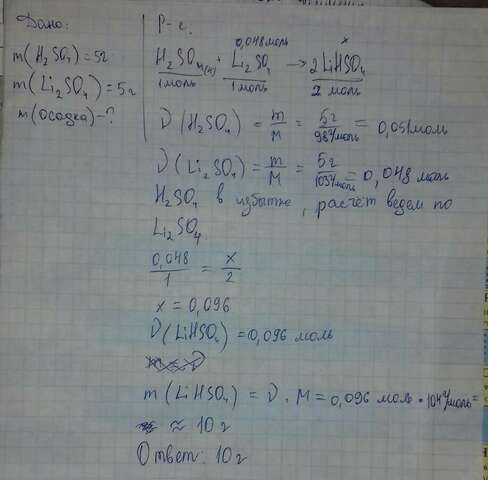 Дано:
m(H₂SO₄)=5г
m(Li₂SO₄)=5г
m(осадка)-?
Р-е:
0,048моль x
H₂SO₄(к) + Li₂SO₄ → 2LiHSO₄
1моль 1моль 2 моль
ν(H₂SO₄) = m/M = 5г/98г/моль = 0,051моль
ν(Li₂SO₄) = m/M = 5г/103г/моль = 0,048 моль
H₂SO₄ в избытке, расчёт ведем по
Li₂SO₄
0,048/1 = x/2
x = 0,096
ν(LiHSO₄) = 0,096 моль
m(LiHSO₄) = ν · M = 0,096 моль · 104г/моль =
≈ 10г
Ответ: 10г